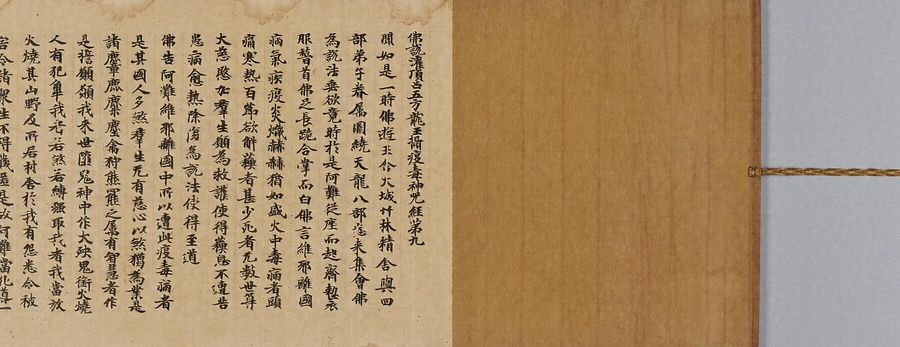 佛說灌頂召五方龍王攝疫毒神呪經第九
聞如是一時佛遊王舍大城竹林精舍與四
部弟子眷屬圍繞天龍八部悉來集會佛
為說法垂欲竟時於是阿難從座而起齊整衣
服稽首佛足長跪合掌而白佛言維耶離國
病氣疫疫炎熾赫赫猶如盛火中毒病者頭
痛寒熱百節欲解蘇者甚少死者无數世尊
大慈愍加羣生願為救護使得蘇息不遭苦
患病愈熱除復為說法使得至道
佛告阿難維耶離國中所以遭此疫毒病者
是其國人多煞羣生无有慈心以煞獵為業是
諸麞麃麋塵禽狩熊羆之屬有智慧者作
是誓願願我來世墮鬼神中作大殃鬼銜火燒
人有犯我者若煞若縛強取我者我當放
火燒其山野及所居村舍於我有怨悉令被
害令諸眾生不得是故阿難當